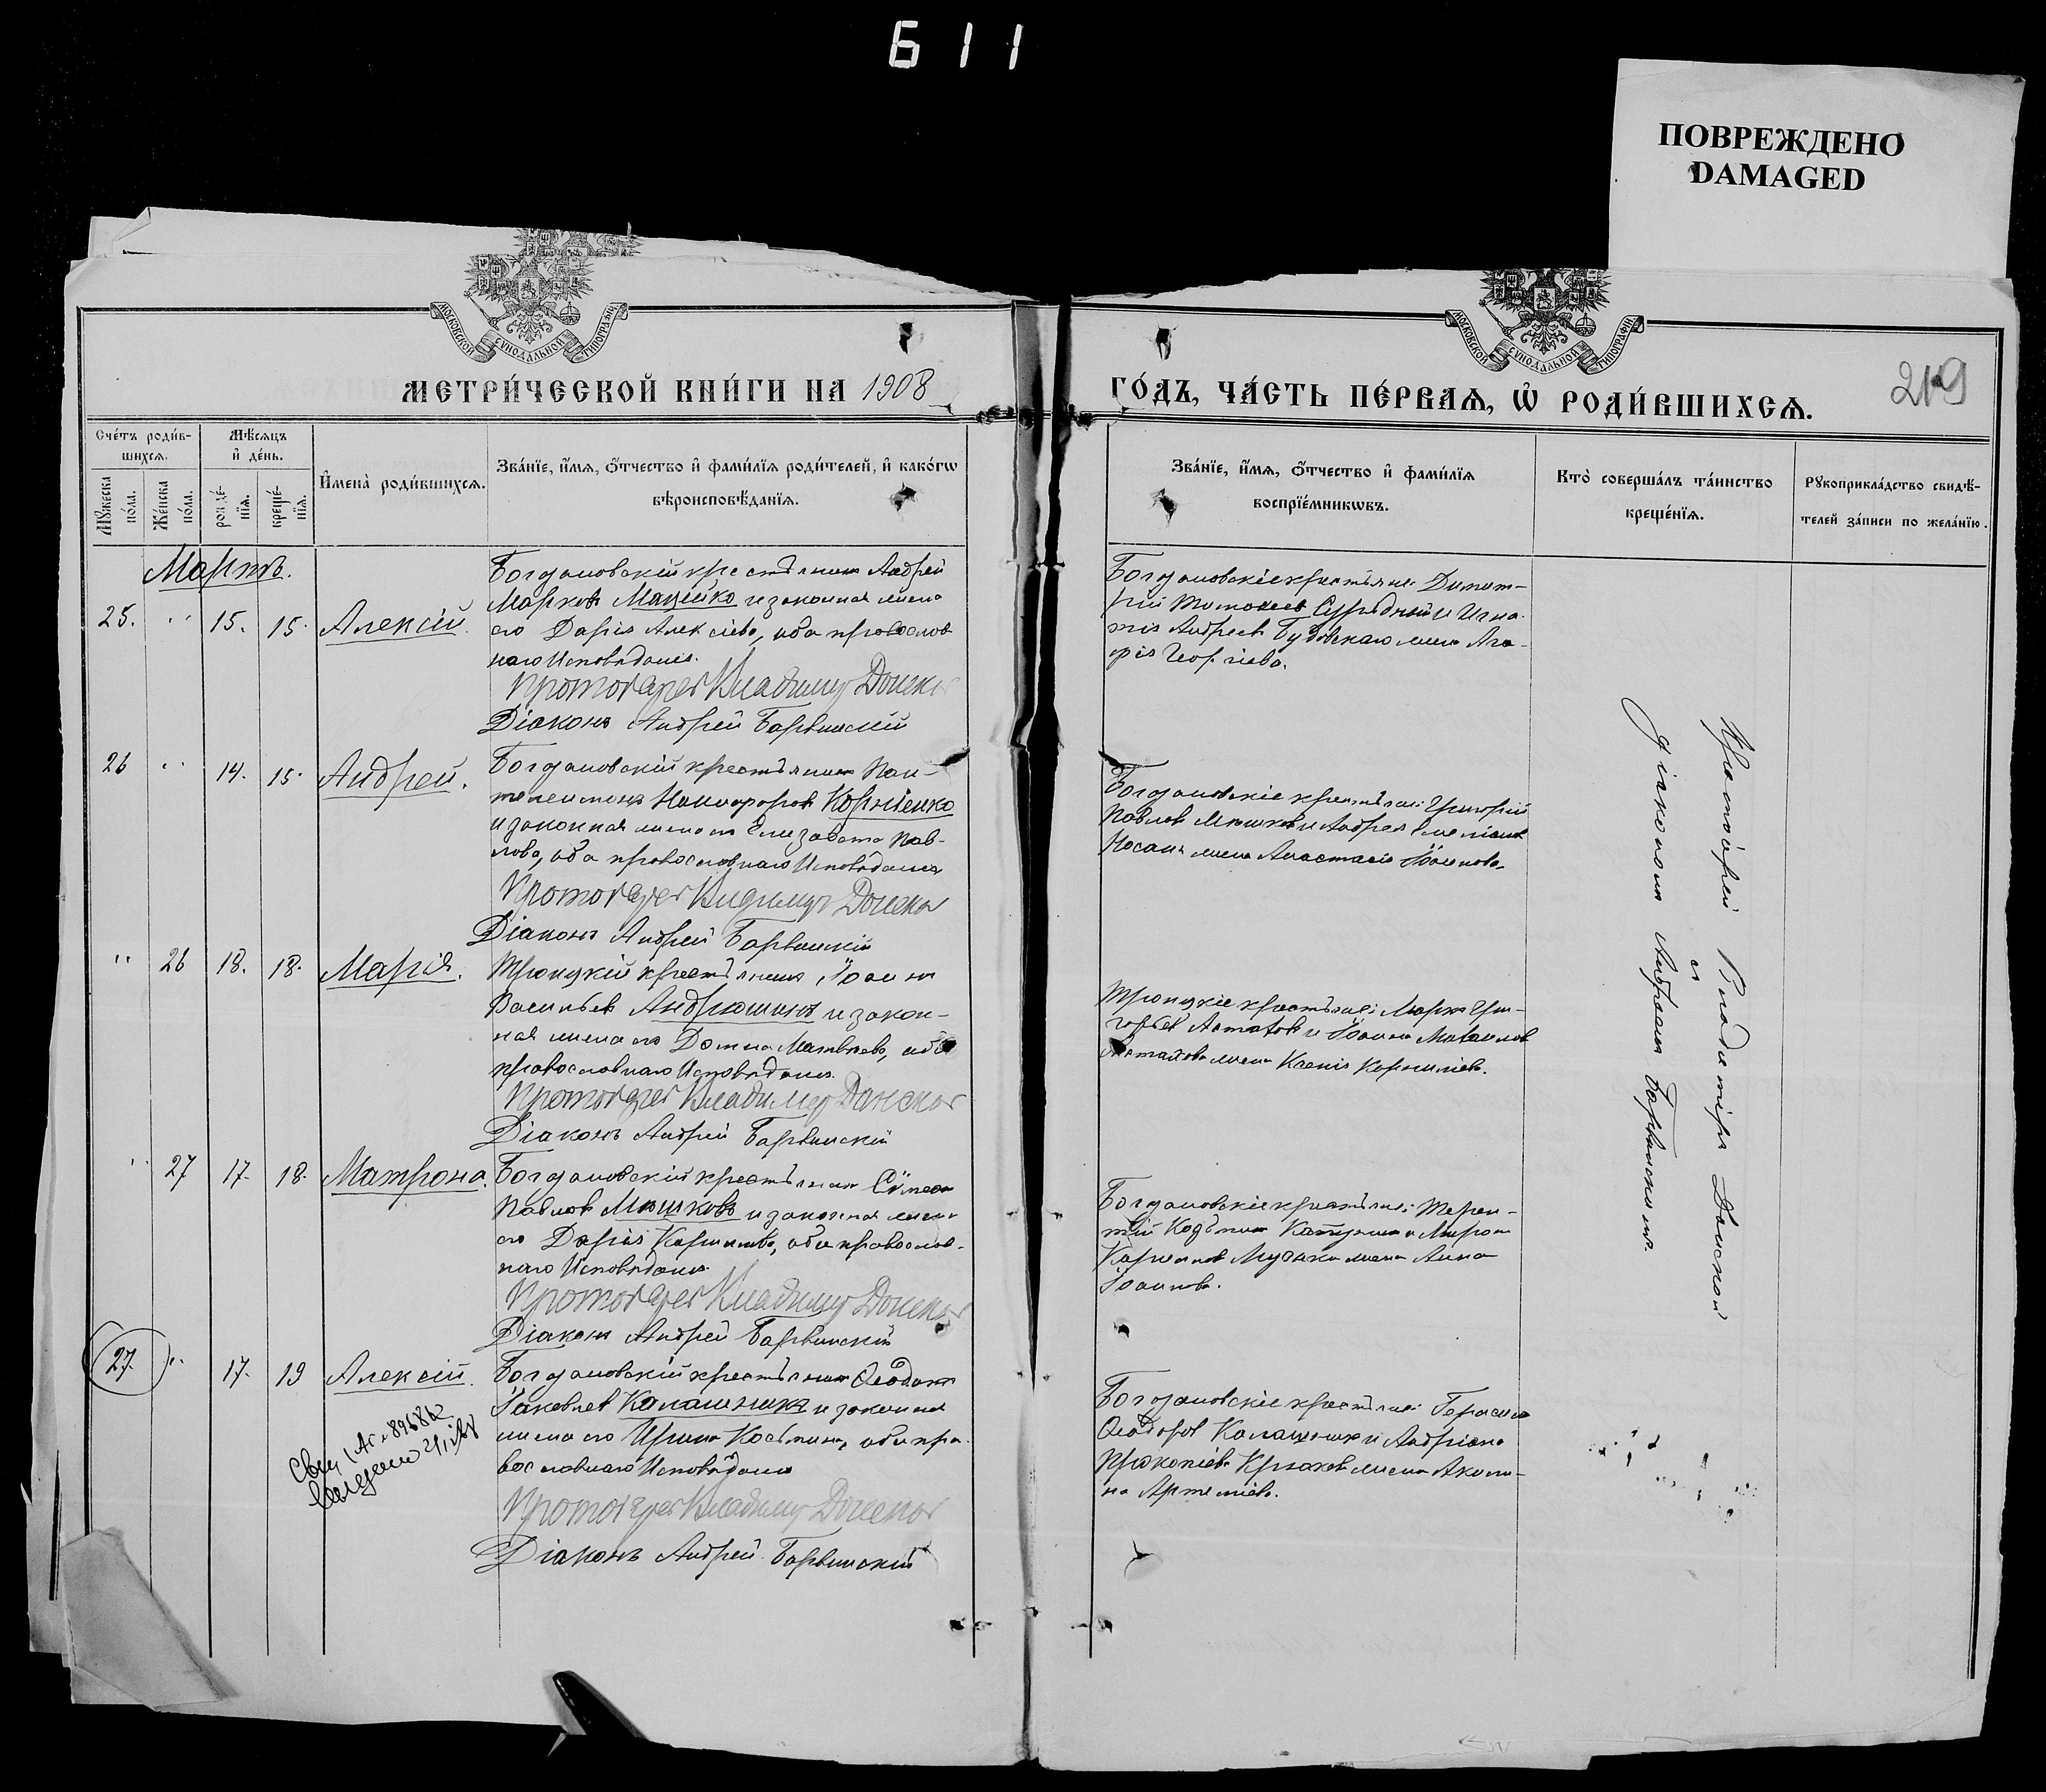 611
ПОВРЕЖДЕНО
DAMAGED
МОСКОВСКОЙ СѴНОДАЛЬНОЙ ТИПОГРАФІИ
МОСКОВСКОЙ СѴНОДАЛЬНОЙ ТИПОГРАФІИ
МЕТРИ́ЧЕСКОЙ КНИ́ГИ НА 1908
ГО́ДЪ, ЧА́СТЬ ПЕ́РВАѦ, Ѡ҆ РОДИ́ВШИХСѦ.
219
Сче́тъ роди́в-
шихсѧ.
Мѣ́сѧцъ
и҆ де́нь.
Мꙋ́жеска
по́ла.
Же́нска
по́ла.
рожде́-
нїѧ.
креще́-
нїѧ.
И҆мена̀ роди́вшихсѧ.
Зва́нїе, и҆́мѧ, ѻ҆́тчество и҆ фами́лїѧ роди́телей, и҆ како́гѡ
вѣроисповѣ́данїѧ.
Зва́нїе, и҆́мѧ, ѻ҆́тчество и҆ фами́лїѧ
воспрїе́мникѡвъ.
Кто̀ соверша́лъ та́инство
креще́нїѧ.
Рꙋкоприкла́дство свидѣ́-
телей за́писи по жела́нїю.
Мартъ.
25. " 15. 15. Алексій.
Богдановскій крестьянинъ Андрей
Марковъ Мацейко и законная жена
его Дарія Алексіева, оба православ
наго Исповѣданія.
Протоіерей Владимиръ Донской
Діаконъ Андрей Барвинскій
Богдановскіе крестьяне: Димит-
рій Сурядный и Игна-
тія Андреева жена Ага-
фія Георгіева.
26 " 14. 15. Андрей.
Богдановскій крестьянинъ Пан-
телеимонъ Никифоровъ Корніенко
и законная жена его Елизавета Пав-
лова, оба православнаго Исповѣданія
Протоіерей Владимиръ Донской
Діаконъ Андрей Барвинскій
Богдановскіе крестьяне: Григорій
Павловъ Мышковъ и Андрея
Носань жена Анастасія Іоаннова.
" 26 18. 18. Марія.
Троицкій крестьянинъ Іоаннъ
Васильевъ Андрюшинъ и закон-
ная жена его Домна Матвѣева, оба
православнаго Исповѣданія.
Протоіерей Владимиръ Донской
Діаконъ Андрей Барвинскій
Троицкіе крестьяне: Маркъ Гри-
горьевъ Астаховъ и Іоанна Михаилова
Астахова жена Ксенія Корниліева.
" 27 17. 18. Матрона.
Богдановскій крестьянинъ Сѵмеонъ
Павловъ Мышковъ и законная жена
его Дарія Корнилова, оба православ-
наго Исповѣданія.
Протоіерей Владимиръ Донской
Діаконъ Андрей Барвинскій
Богдановскіе крестьяне: Терен-
тій Козьминъ и Миронъ
жена Анна
Іоаннова.
27. " 17. 19 Алексій.
Богдановскій крестьянинъ Ѳеодотъ
Іаковлевъ Калашникъ и законная
жена его Ирина Косьмина, оба пра-
вославнаго Исповѣданія
Протоіерей Владимиръ Донской
Діаконъ Андрей Барвинскій
Богдановскіе крестьяне: Герасимъ
Ѳеодоровъ Калашникъ и Андріана
Прокопіева Крюкова жена Акили-
на Артеміева.
Протоіерей Владиміръ Донской
и
діакономъ Андреемъ Барвинскимъ.